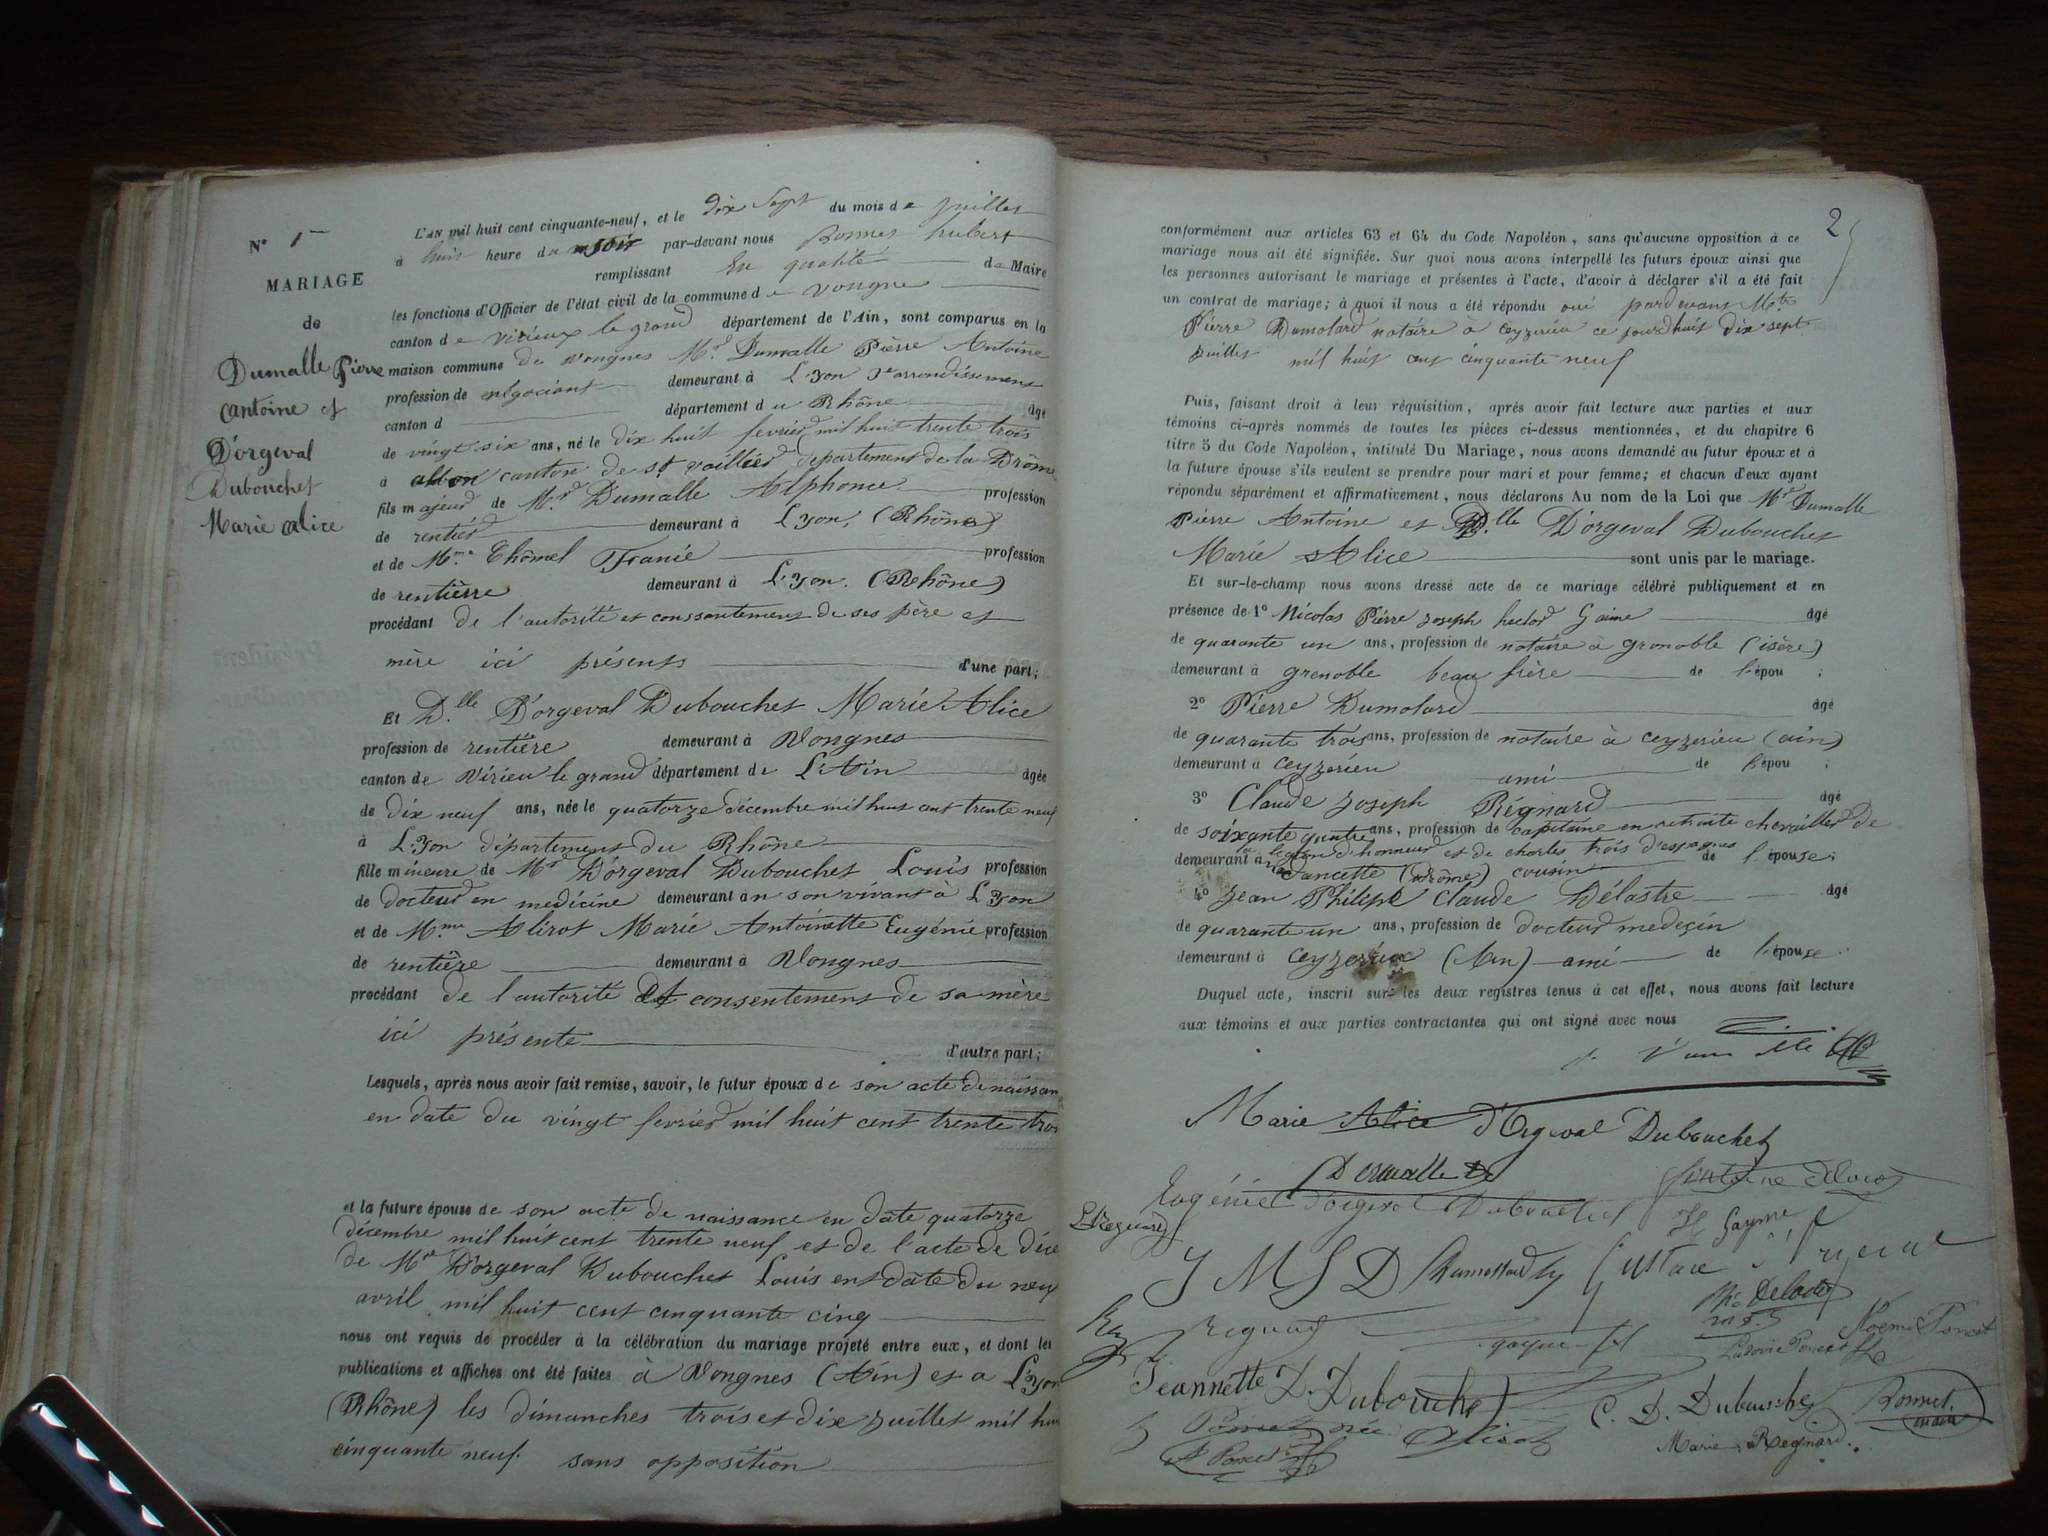 N° 1er
MARIAGE
de
Dumalle Pierre
antoine et
D'orgeval
Dubouchet
Marie alice
L'AN mil huit cent cinquante-neuf, et le dix sept du mois de juillet
à huit heure du soir par-devant nous Bonnet hubert
remplissant En qualité de Maire
les fonctions d'Officier de l'état civil de la commune de vongne
canton de virieux le grand département de l'Ain, sont comparus en la
maison commune de vongnes Mr Dumalle Pierre Antoine
profession de négociant demeurant à Lyon arrondissement
canton d département du Rhône âgé
de vingt six ans, né le dix huit fevrier mil huit trente trois
à albon canton de st vaillier departement de la Drôme
fils majeur de Mr Dumalle Alphonce profession
de rentier demeurant à Lyon, (Rhône)
et de Mme Thômel Franie profession
de rentièrre demeurant à Lyon. (Rhône)
procédant de l'autorité et conssentement de ses père et
mère ici présents d'une part;
Et D.lle D'orgeval Dubouchet Marie Alice
profession de rentière demeurant à Vongnes
canton de Virieu le grand département de L'Ain âgée
de dix neuf ans, née le quatorze décembre mil huit cent trente neuf
à Lyon département du Rhône
fille mineure de Mr D'orgeval Dubouchet Louis profession
de docteur en medicine demeurant en son vivant à Lyon
et de Mme Alirot Marie Antoinette Eugénie profession
de rentière demeurant à Vongnes
procédant de l'autorité et consentement de sa mère
ici présente d'autre part;
Lesquels, après nous avoir fait remise, savoir, le futur époux de son acte de naissan
en date du vingt fevrier mil huit cent trente trois
et la future épouse de son acte de naissance en date quatorze
décembre mil huit cent trente neuf et de l'acte de déce
de Mr D'orgeval Dubouchet Louis en date du neuf
avril mil huit cent cinquante cinq
nous ont requis de procéder à la célébration du mariage projeté entre eux, et dont les
publications et affiches ont été faites à Vongnes (Ain) et a Lyon
(Rhône) les dimanches trois et dix juillet mil hui
cinquante neuf. sans opposition
2
conformément aux articles 63 et 64 du Code Napoléon, sans qu'aucune opposition à ce
mariage nous ait été signifiée. Sur quoi nous avons interpellé les futurs époux ainsi que
les personnes autorisant le mariage et présentes à l'acte, d'avoir à déclarer s'il a été fait
un contrat de mariage; à quoi il nous a été répondu oui pardevant Mtre
Pierre Dumolard notaire à ceyzerieu ce jourdhuit dix sept
juillet mil huit cent cinquante neuf
Puis, faisant droit à leur réquisition, après avoir fait lecture aux parties et aux
témoins ci-après nommés de toutes les pièces ci-dessus mentionnées, et du chapitre 6
titre 5 du Code Napoléon, intitulé Du Mariage, nous avons demandé au futur époux et à
la future épouse s'ils veulent se prendre pour mari et pour femme; et chacun d'eux ayant
répondu séparément et affirmativement, nous déclarons Au nom de la Loi que Mr Dumalle
Pierre Antoine et D.lle D'orgeval Dubouchet
Marie Alice sont unis par le mariage.
Et sur-le-champ nous avons dressé acte de ce mariage célébré publiquement et en
présence de 1° Nicolas Pierre joseph hector Gaime âgé
de quarante un ans, profession de notaire à grenoble (isère)
demeurant à grenoble beau frère de l'épou ;
2° Pierre Dumolard âgé
de quarante trois ans, profession de notaire à ceyzerieu (ain)
demeurant à ceyzerieu ami de l'épou ;
3° Claude joseph Régnard âgé
de soixante quatre ans, profession de capitaine en retraite chevaillier de
la legion d'honneur et de charles trois d'espagnes
demeurant à Sancette (drôme) cousin de l'épouse;
4° jean Philipe Claude Délastre âgé
de quarante un ans, profession de docteur medeçin
demeurant à ceyzerieu (Ain) ami de l'épouse.
Duquel acte, inscrit sur les deux registres tenus à cet effet, nous avons fait lecture
aux témoins et aux parties contractantes qui ont signé avec nous
Marie Alice d'Orgeval Dubouchet
Dumalle
Eugénie d'orgeval Dubouchet
H Gayme
J M S D Dumollard Gustave d'Orgeval
Regnard
Noemi Poncet
Ludovic Poncet
Jeannette D. Dubouchet
C. D. Dubouchet
Bonnet
maire
Poncet née Alirot
Marie Regnard
A Poncet